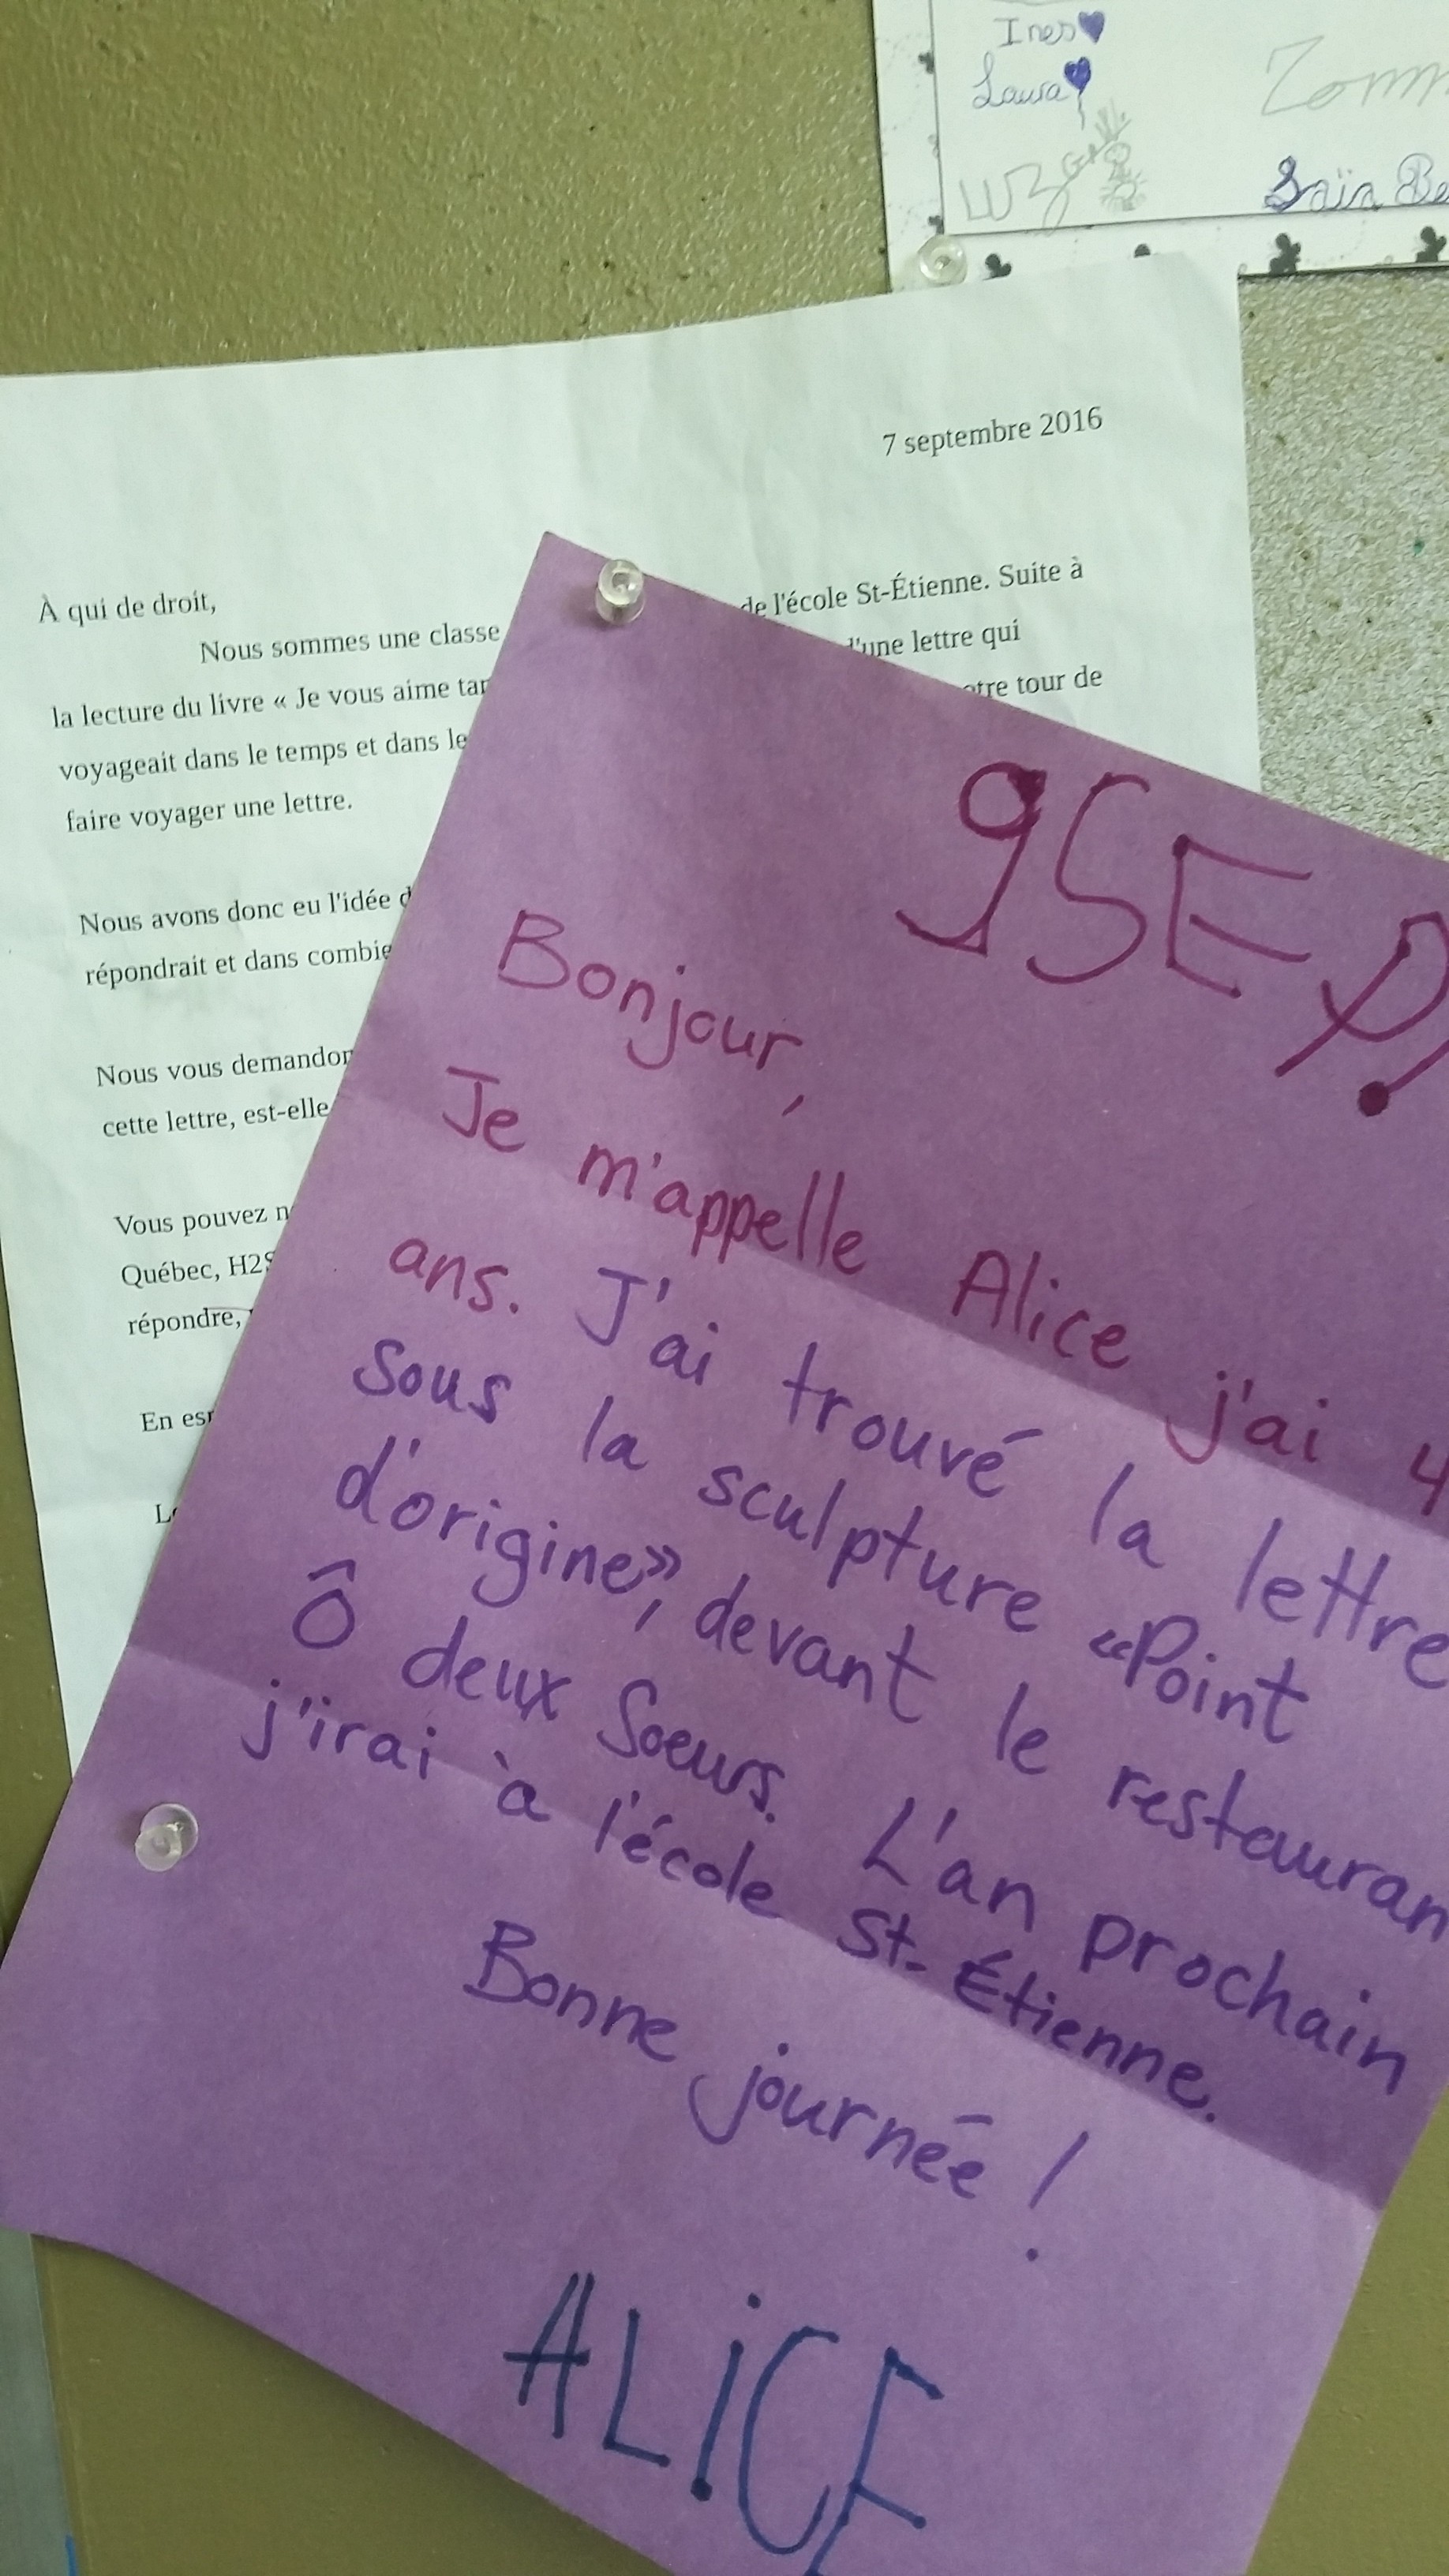 Ines
Laura
LUZ
7 septembre 2016
À qui de droit,
Nous sommes une classe de l'école St-Étienne. Suite à
la lecture du livre « Je vous aime d'une lettre qui
voyageait dans le temps et dans le tour de
faire voyager une lettre.
Nous avons donc eu l'idée
répondrait et dans
Nous vous
cette lettre, est-elle
Vous pouvez
Québec,
répondre,
En
9 SEP
Bonjour,
Je m'appelle Alice j'ai 4
ans. J'ai trouvé la lettre
sous la sculpture «Point
d'origine», devant le restauran
Ô deux Soeurs. L'an prochain
j'irai à l'école St-Étienne.
Bonne journée !
ALiCE